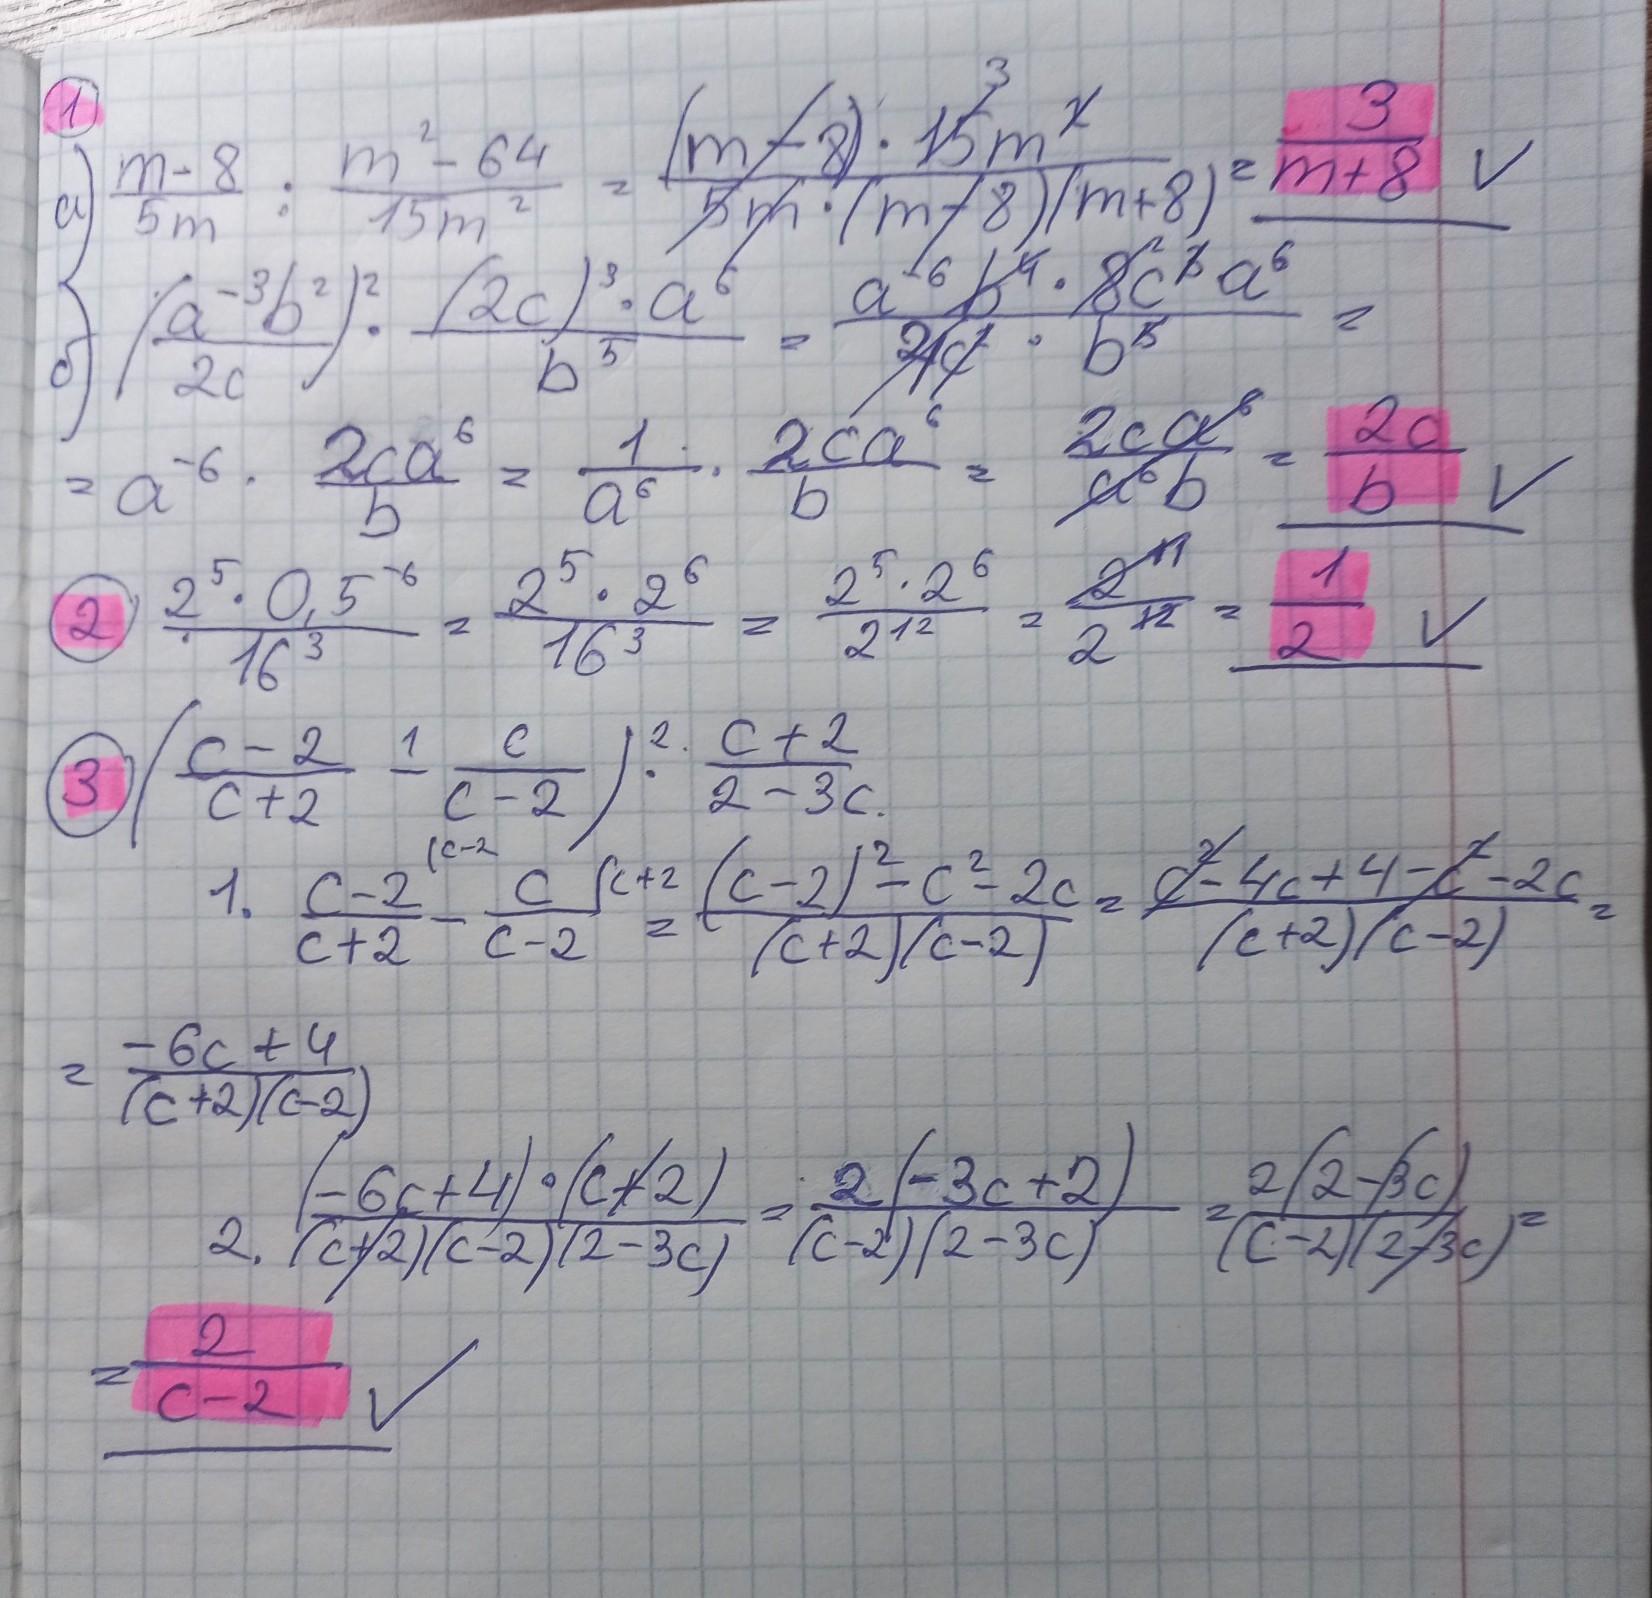 1
а) (m-8)/(5m) : (m²-64)/(15m²) = ((m-8)·15m²)/(5m·(m-8)(m+8)) = 3/(m+8) ✓
б) ((a⁻³b²)/(2c))² · ((2c)³·a⁶)/b⁵ = (a⁻⁶b⁴·8c³a⁶)/(4c²·b⁵) =
= a⁻⁶ · (2ca⁶)/b = 1/a⁶ · (2ca⁶)/b = (2ca⁶)/(a⁶b) = 2c/b ✓
2 (2⁵·0,5⁻⁶)/16³ = (2⁵·2⁶)/16³ = (2⁵·2⁶)/2¹² = 2¹¹/2¹² = 1/2 ✓
3 ((c-2)/(c+2) -¹ c/(c-2)) :² (c+2)/(2-3c)
1. (c-2)/(c+2) (c-2 - c/(c-2) (c+2 = ((c-2)²-c²-2c)/((c+2)(c-2)) = (c²-4c+4-c²-2c)/((c+2)(c-2)) =
= (-6c+4)/((c+2)(c-2))
2. ((-6c+4)·(c+2))/((c+2)(c-2)(2-3c)) = (2(-3c+2))/((c-2)(2-3c)) = (2(2-3c))/((c-2)(2-3c)) =
= 2/(c-2) ✓